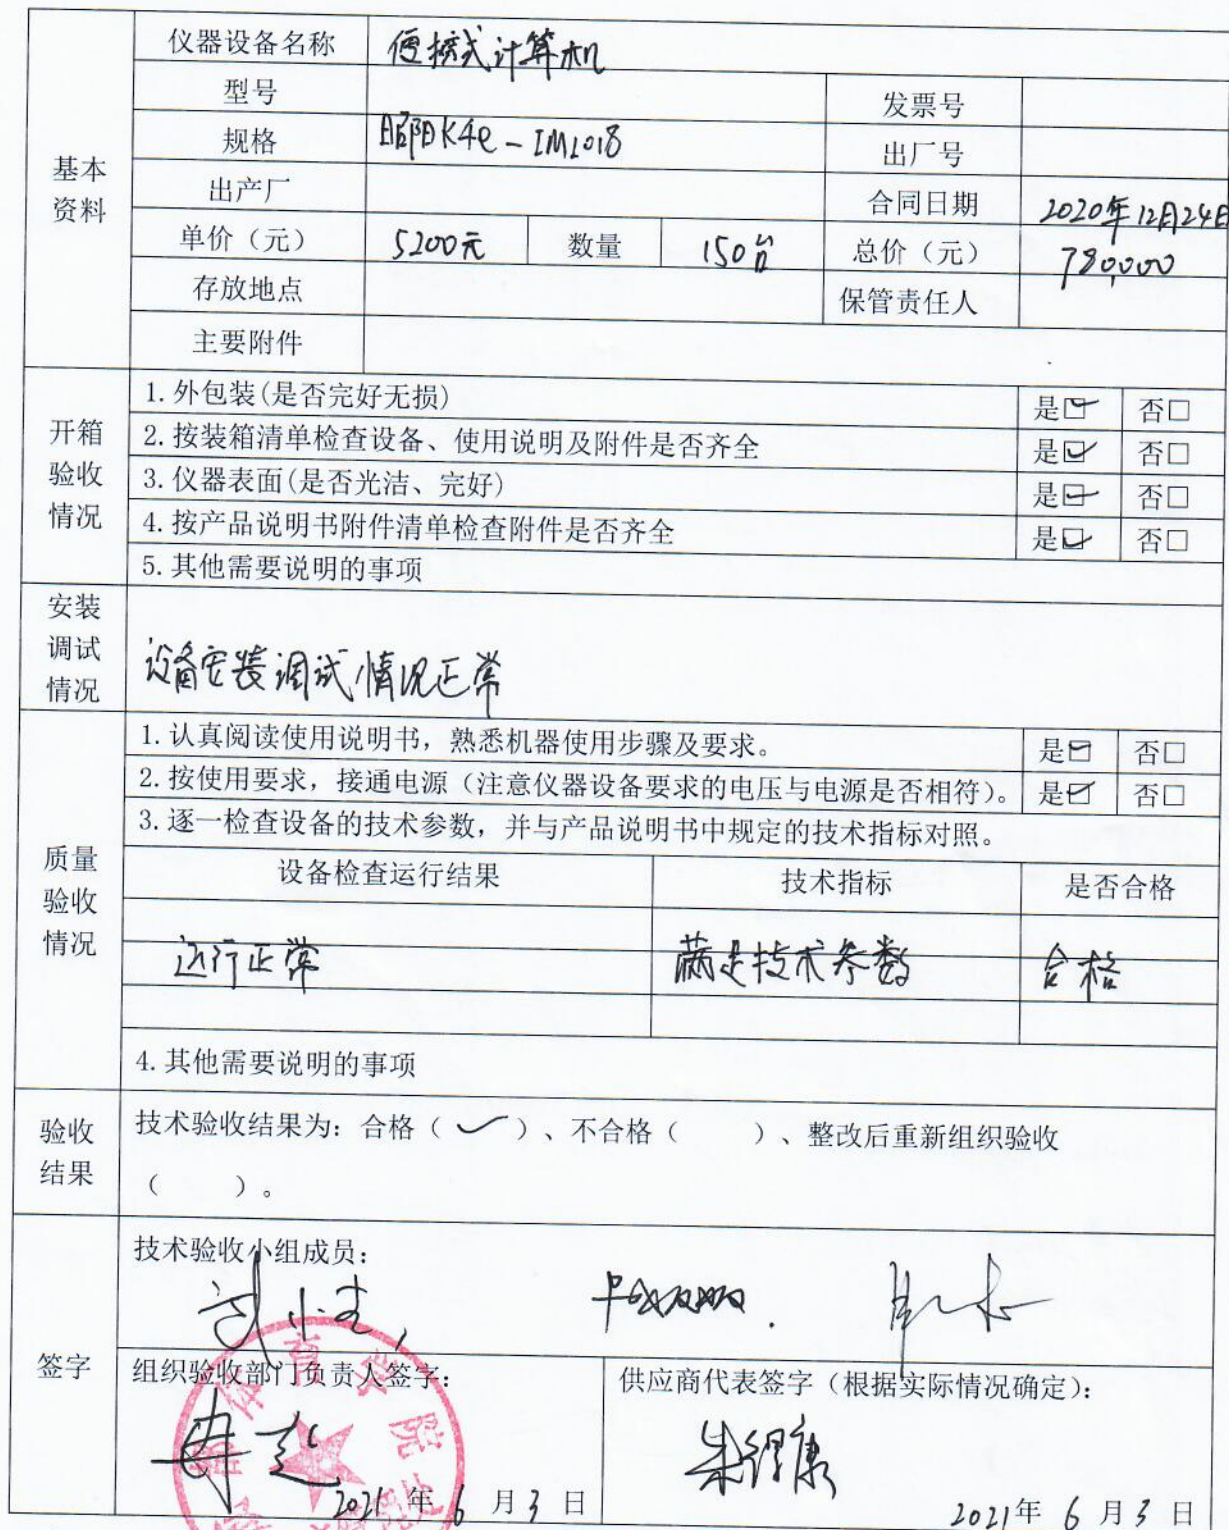 仪器设备名称 便携式计算机
型号
发票号
规格 昭阳K4e-IML018
出厂号
基本资料
出产厂
合同日期 2020年12月24日
单价（元） 5200元 数量 150台 总价（元） 780,000
存放地点
保管责任人
主要附件
开箱验收情况
1.外包装(是否完好无损) 是☑ 否□
2.按装箱清单检查设备、使用说明及附件是否齐全 是☑ 否□
3.仪器表面(是否光洁、完好) 是☑ 否□
4.按产品说明书附件清单检查附件是否齐全 是☑ 否□
5.其他需要说明的事项
安装调试情况
设备安装调试情况正常
质量验收情况
1.认真阅读使用说明书，熟悉机器使用步骤及要求。 是☑ 否□
2.按使用要求，接通电源（注意仪器设备要求的电压与电源是否相符）。 是☑ 否□
3.逐一检查设备的技术参数，并与产品说明书中规定的技术指标对照。
设备检查运行结果 技术指标 是否合格
运行正常 满足技术参数 合格
4.其他需要说明的事项
验收结果
技术验收结果为：合格（✓）、不合格（ ）、整改后重新组织验收
（ ）。
签字
技术验收小组成员：
组织验收部门负责人签字：
供应商代表签字（根据实际情况确定）：
体育学院
2021年6月3日
2021年6月3日